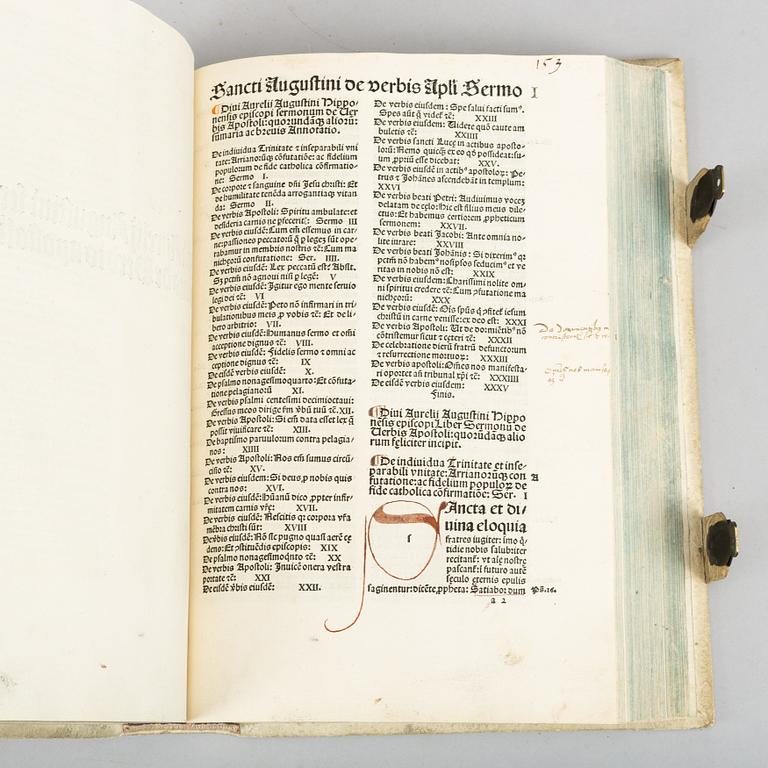 153
Sancti Augustini de verbis Apli Sermo I
Diui Aurelii Augustini Hippo-
nensis episcopi sermonum de Uer
bis Apostoli: quorundāq aliorū:
summaria ac breuis Annotatio.
De indiuidua Trinitate et inseparabili vni
tate: Arrianorūq cōfutatiōe: ac fidelium
populorum de fide catholica cōfirmatio-
ne: Sermo I.
De corpore et sanguine dn̄i Jesu christi: Et
de humilitate tenēda arrogantiaq vitan
da: Sermo II.
De verbis Apostoli: Spiritu ambulate: et
desideria carnis ne pfecerit: Sermo III
De verbis eiusdem: Cum essemus in car-
ne: passiones peccatorū q p leges sūt ope-
rabantur in membris nostris τč: Cum ma
nicheorū confutatione: Ser. IIII.
De verbis eiusdem: Lex peccatū est? Absit.
Sz peccatū nō agnoui nisi p legē: V
De verbis eiusdem: Igitur ego mente seruio
legi dei τč: VI
De verbis eiusdem: Peto nō infirmari in tri-
bulationibus meis p vobis τč: Et de li-
bero arbitrio: VII.
De verbis eiusdē: Humanus sermo et omni
acceptione dignus τč: VIII.
De verbis eiusdē: Fidelis sermo τ omni ac
ceptione dignus τč: IX
De verbis eiusdē: X.
De psalmo nonagesimoquarto: Et cōfuta-
tione pelagianorū XI.
De verbis psalmi centesimi decimioctaui:
Gressus meos dirige fm̄ vbū tuū τč. XII.
De verbis Apostoli: Si em̄ data esset lex q
possit viuificare τč: XIII.
De baptismo paruulorum contra pelagia-
nos: XIIII
De verbis Apostoli: Nos em̄ sumus circū-
cisio τč: XV.
De verbis eiusdem: Si deus p nobis quis
contra nos: XVI.
De verbis eiusdē: Hūanū dico ppter infir-
mitatem carnis vrē: XVII.
De verbis eiusdē: Nescitis q corpora vra
mēbra christi sūt: XVIII
De vbis eiusdē: Nō sic pugno quasi aerē cę
dens: Et pstituēdis episcopis: XIX
De psalmo nonagesimoqnto τč: XX
De verbis Apostoli: Inuicē onera vestra
portate τč: XXI
De eisdē vbis eiusdē: XXII.
De verbis eiusdem: Spe salui facti sum.
Spes aūt q videt τč: XXIII
De verbis eiusdem: Uidete quō caute am
buletis τč: XXIIII
De verbis sancti Lucę in actibus aposto-
lorū: Nemo quicq ex eo qd possideat: su-
um, ppriū esse dicebat: XXV.
De verbis eiusdē in actib apostolorum: Pe-
trus et Johānes ascendebāt in templum:
XXVI
De verbis beati Petri: Audiuimus vocez
delatam de cęlo: Hic est filius meus dile-
ctus: Et habemus certiorem ppheticum
sermonem: XXVII.
De verbis beati Jacobi: Ante omnia no-
lite iurare: XXVIII
De verbis beati Johānis: Si dixerim q
peccatū nō habem nosipsos seducim et ve
ritas in nobis nō est: XXIX
De verbis eiusdem: Charissimi nolite om-
ni spiritui credere τč: Cum pfutatione ma
nichęorū: XXX
De verbis eiusdem: Ois spūs q pfitet iesum
christū in carne venisse: ex deo est: XXXI
De verbis Apostoli: Ut de dormiētib nō
cōtristemur sicut et cęteri τč: XXXII
De celebratione dierū fratrū defunctorum
et resurrectione mortuorum: XXXIII
De verbis apostoli: Omnes nos manifesta-
ri oportet an̄ tribunal xp̄i τč: XXXIIII
De eisdē verbis eiusdem: XXXV
Finis.
Diui Aurelij Augustini Hippo
nēsis episcopi Liber Sermonū de
Uerbis Apostoli: quorūdāq alio
rum feliciter incipit.
De indiuidua Trinitate et inse-
parabili vnitate: Arrianorūq con
futatione: ac fidelium populorum de
fide catholica cōfirmatiōe: Ser. I
A
s
Ancta et di-
uina eloquia
fratres iugiter: imo q
tidie nobis salubriter
recitant: vt alę nostrę
pascant: i futuro autē
seculo eternis epulis
saginentur: dicēte ppheta: Satiabor dum
Ps. 16.
a 2